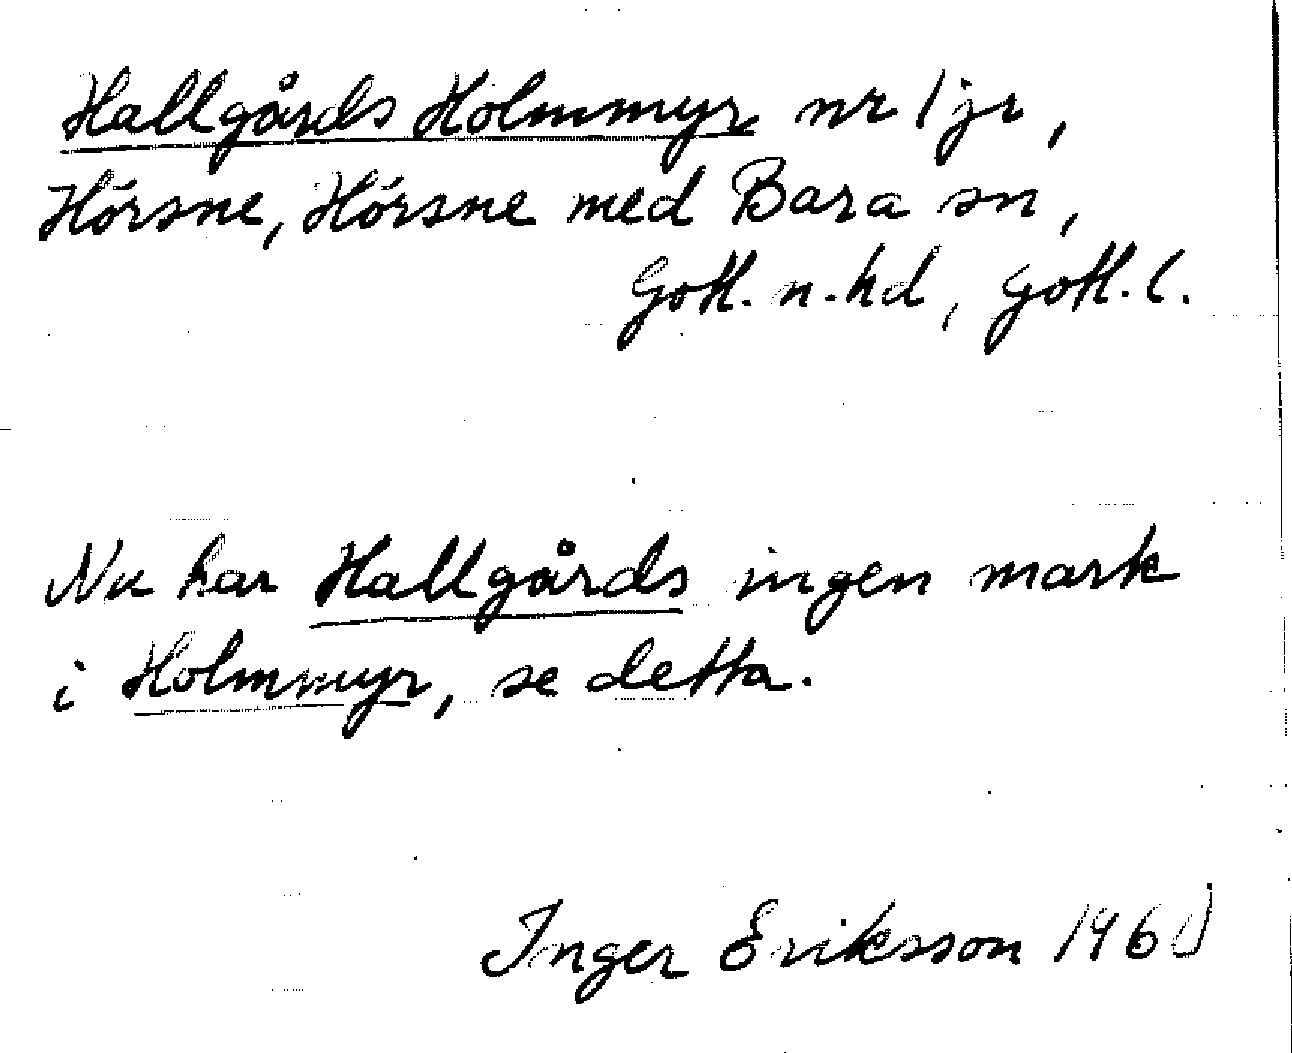 Hallgårds Holmmyr nr 1 jr,
Hörsne, Hörsne med Bara sn,
Gotl. n. hd, Gotl. l.
Nu har Hallgårds ingen mark
i Holmmyr, se detta.
Inger Eriksson 1960